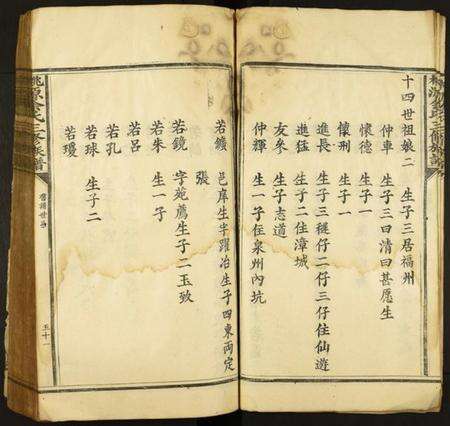 十四世祖娘二　生子三居福州
仲車　生子三曰清曰甚愿生
懷德　生子一
懷刑　生子一
進長　生子三䙚仔二仔三仔住仙遊
進猛　生子二住漳城
友參　生子志道
仲輝　生一子住泉州內坑
若鑛　邑庠生半躍冶生子四東両定
張
若鏡　字苑薦生子二玉致
若朱　生一子
若呂
若孔
若球　生子二
若瓊
三修族譜
舊譜世系
五十一